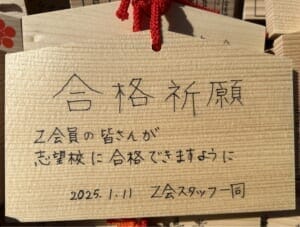 合格祈願
Z会員の皆さんが
志望校に合格できますように
2025.1.11 Z会スタッフ一同